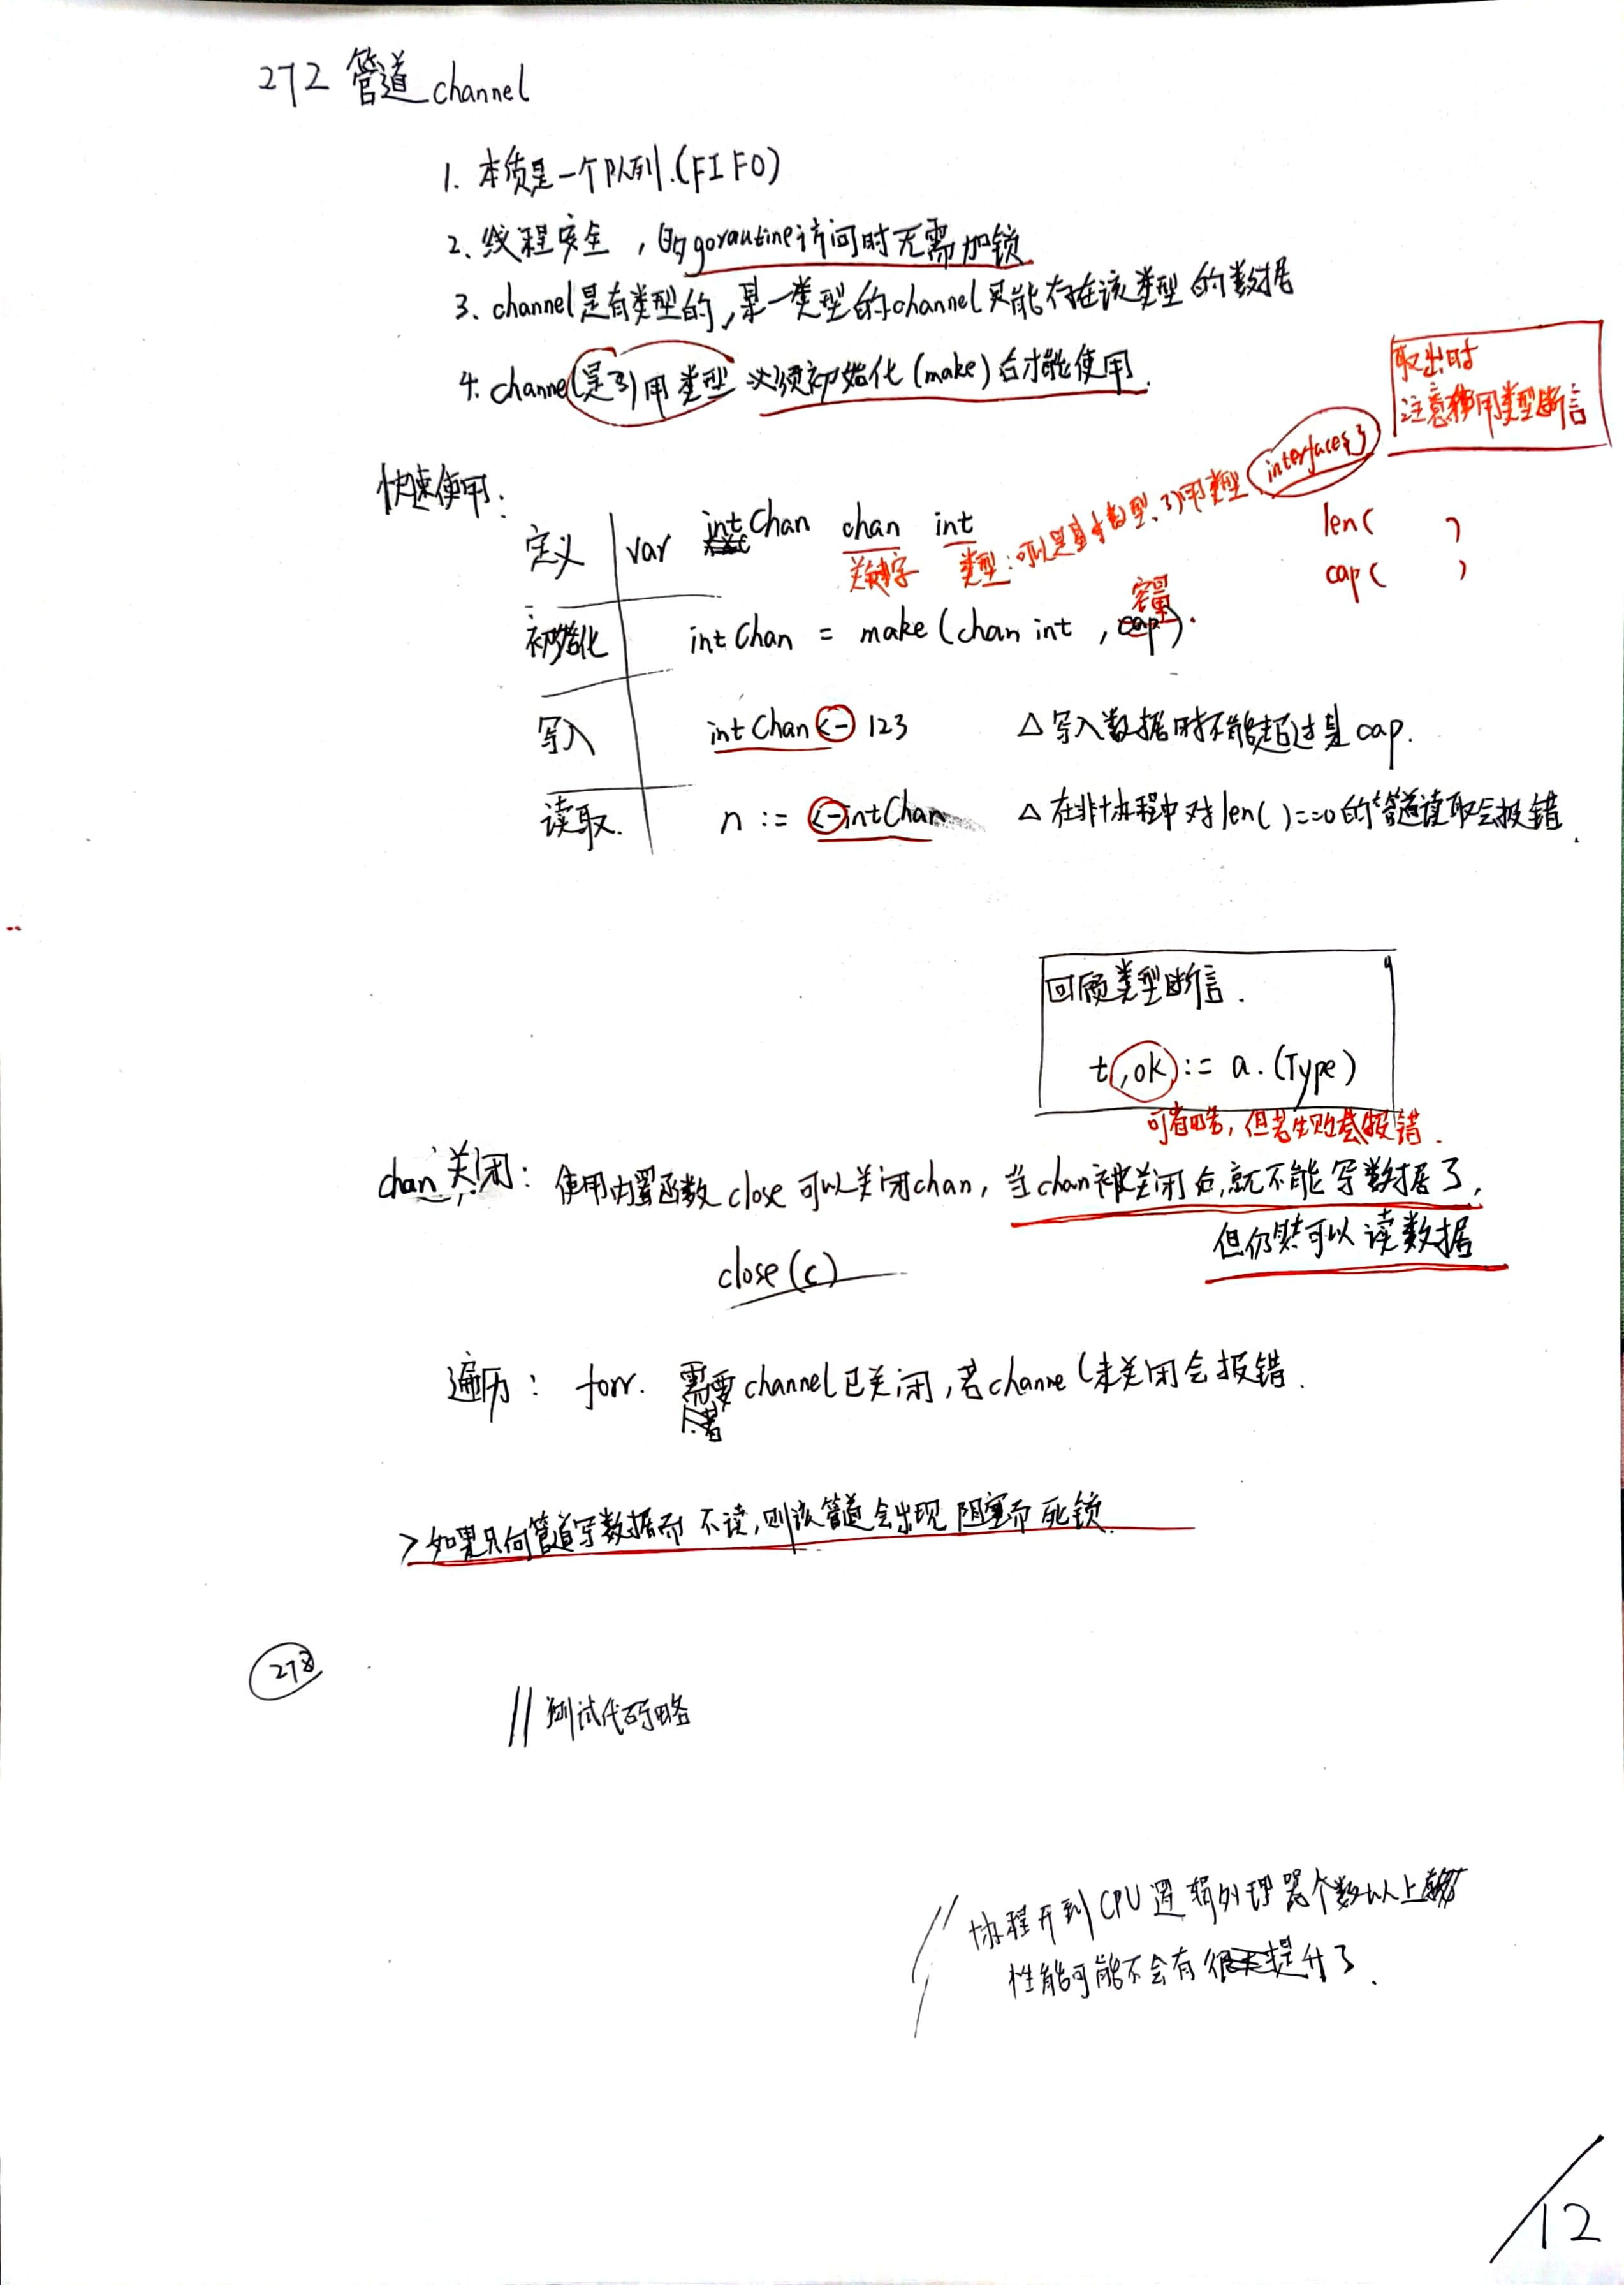 272 管道 channel
1. 本质是一个队列.(FIFO)
2. 线程安全，的goroutine访问时无需加锁
3. channel是有类型的，某一类型的channel只能存在该类型的数据
4. channel是引用类型 必须初始化(make)后才能使用.
取出时
注意使用类型断言
快速使用:
定义 var intChan chan int
关键字 类型:可以是基本类型、引用类型 interface{}
len( )
cap( )
容量
初始化 intChan = make(chan int , cap).
写入 intChan <- 123 △ 写入数据时不能超过其cap.
读取. n := <-intChan △ 在非协程中对len()==0的管道读取会报错.
回顾类型断言.
t,ok := a.(Type)
可省略, 但若失败会报错.
chan关闭: 使用内置函数close可以关闭chan, 当chan被关闭后,就不能写数据了,
但仍然可以读数据
close(c)
遍历: forr. 需要channel已关闭,若channel未关闭会报错.
>如果只向管道写数据而不读,则该管道会出现阻塞而死锁.
278
// 测试代码略
// 协程开到CPU逻辑处理器个数以上
性能可能不会有很大提升了.
12